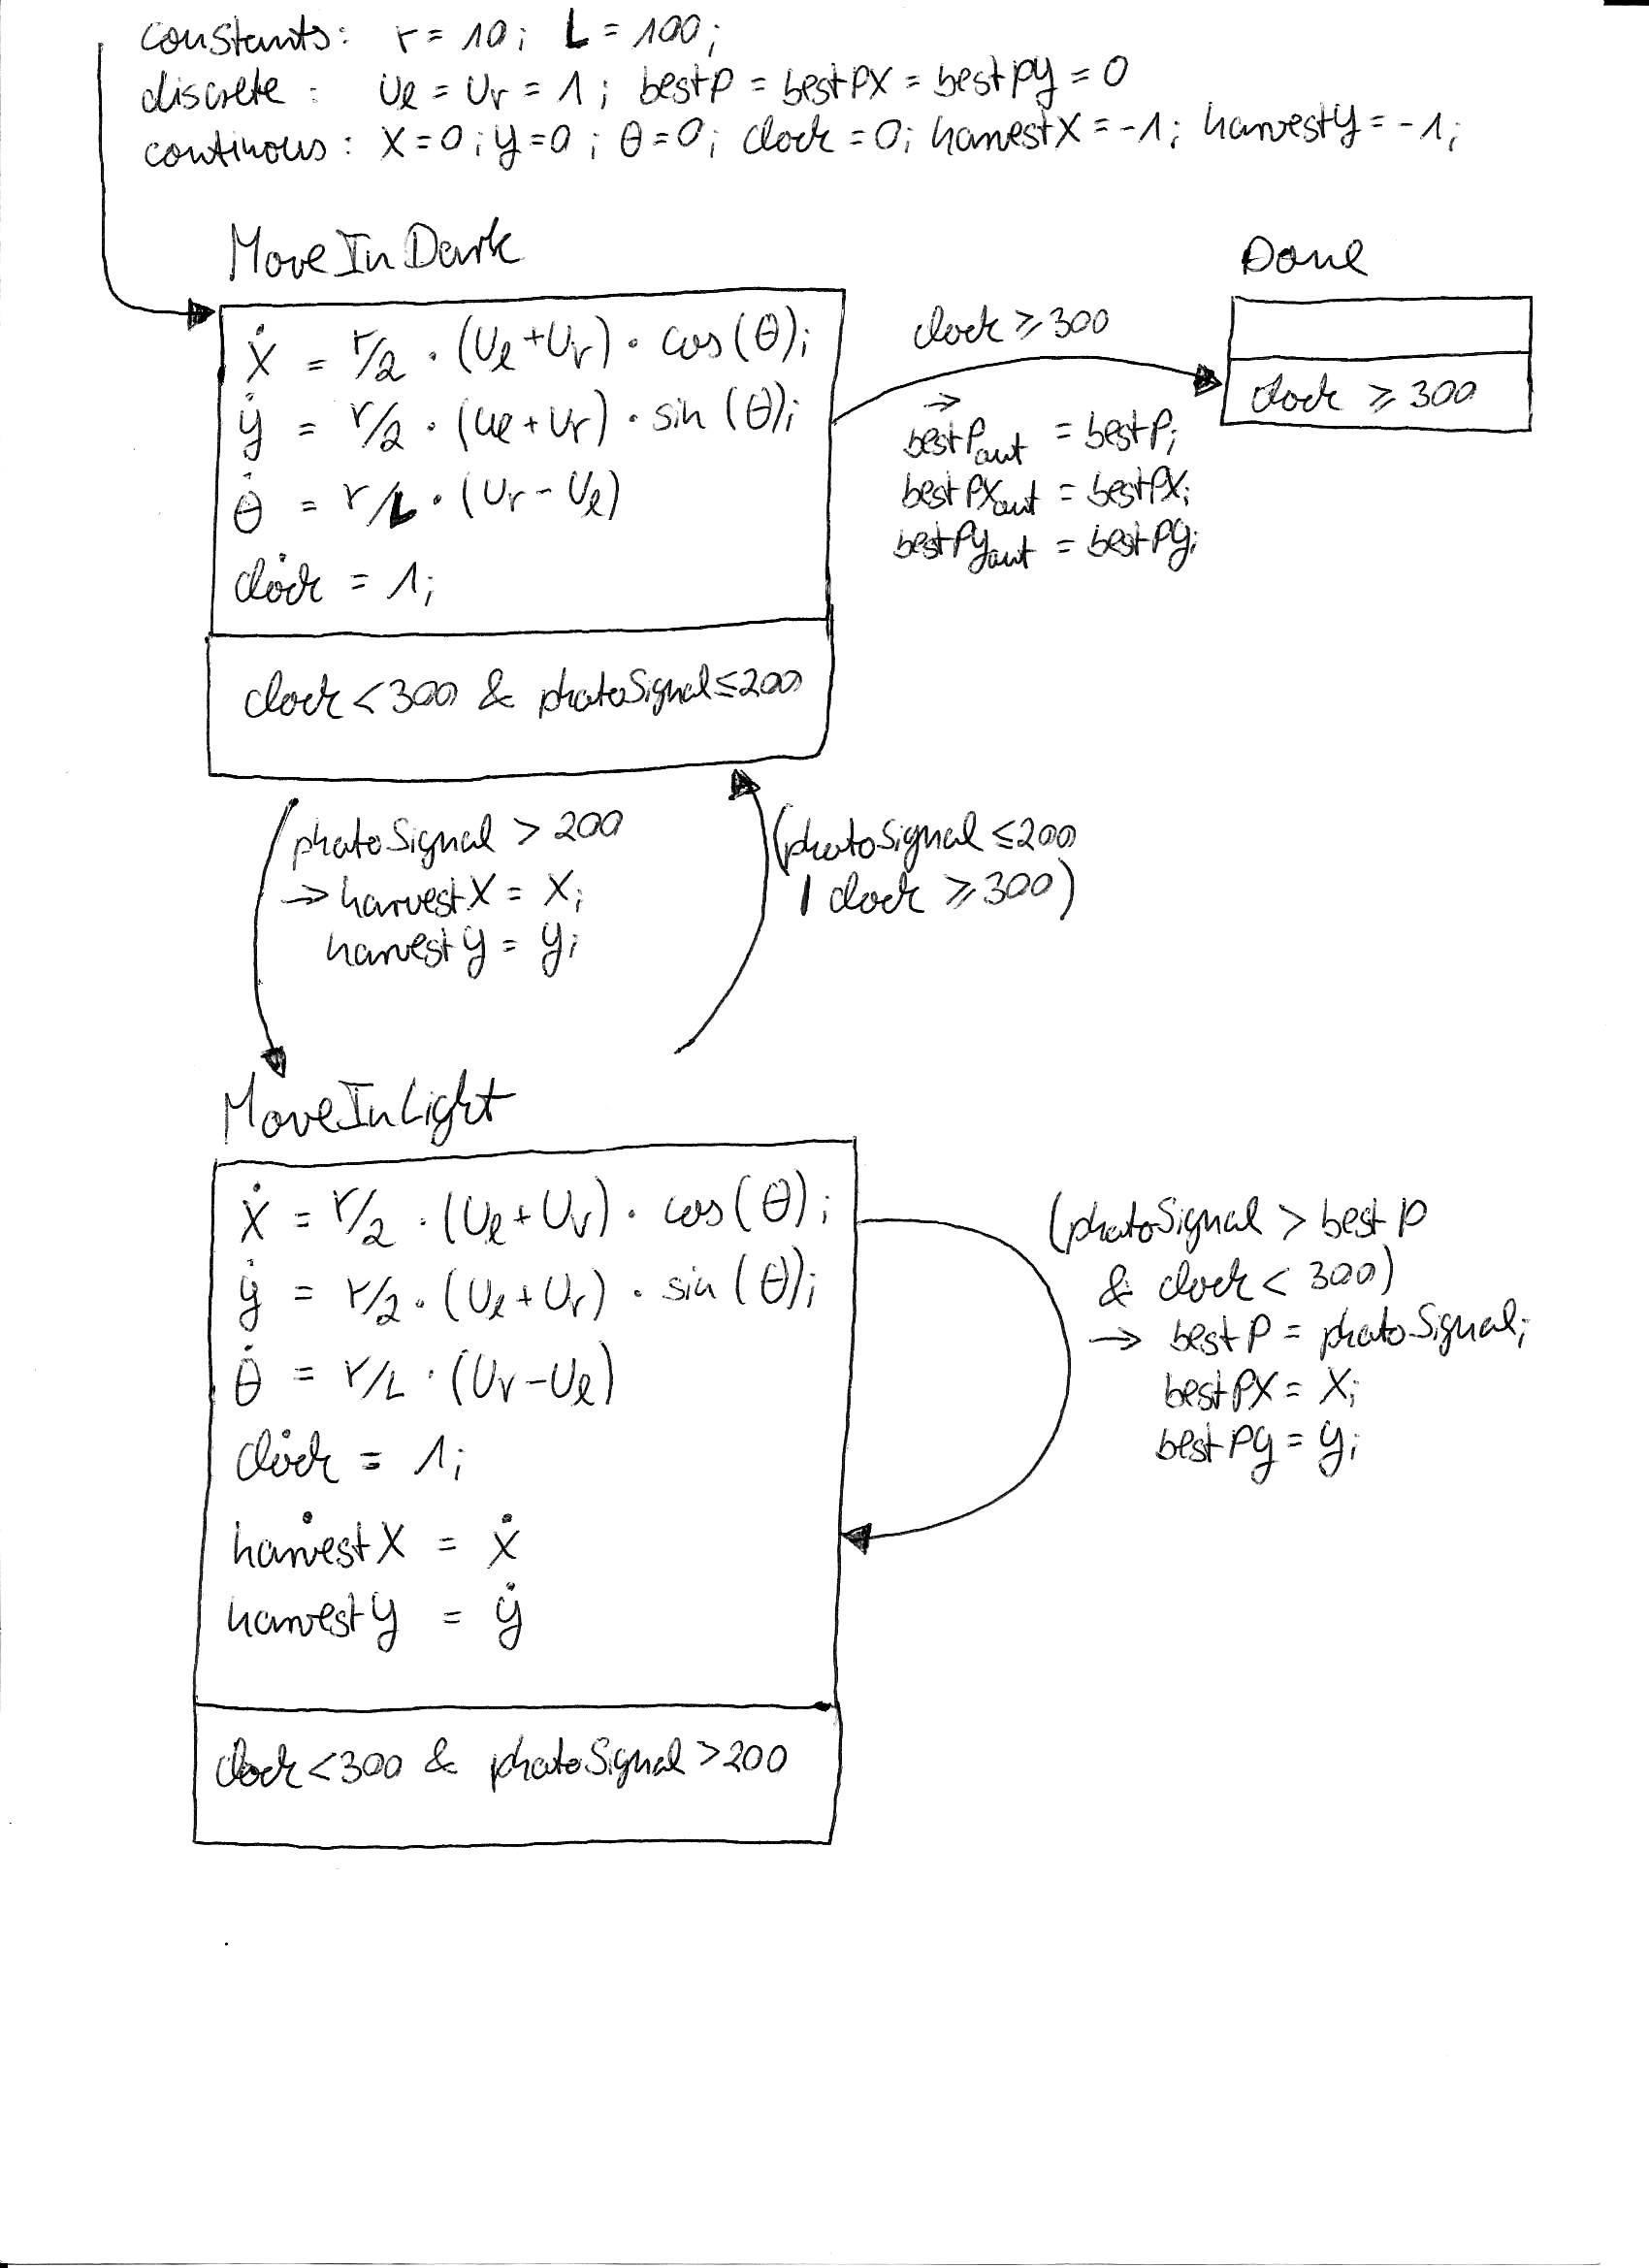 constants: r = 10; L = 100;
discrete: Uℓ = Ur = 1; bestP = bestPX = bestPy = 0
continous: X=0; y=0; θ=0; clock=0; harvestX=-1; harvesty=-1;
MoveInDark
Ẋ = r/2 · (Uℓ+Ur) · cos(θ);
ẏ = r/2 · (Uℓ+Ur) · sin(θ);
θ̇ = r/L · (Ur-Uℓ)
cloċk = 1;
clock<300 & photoSignal≤200
clock ≥ 300
→
bestPout = bestP;
bestPXout = bestPX;
bestPyout = bestPy;
Done
clock ≥ 300
photoSignal > 200
→ harvestX = X;
harvesty = y;
(photoSignal ≤200
| clock ≥ 300)
MoveInLight
Ẋ = r/2 · (Uℓ+Ur) · cos(θ);
ẏ = r/2 · (Uℓ+Ur) · sin(θ);
θ̇ = r/L · (Ur-Uℓ)
cloċk = 1;
harv̇estX = ẋ
harvesty = ẏ
clock<300 & photoSignal>200
(photoSignal > bestP
& clock < 300)
→ bestP = photoSignal;
bestPX = X;
bestPy = y;